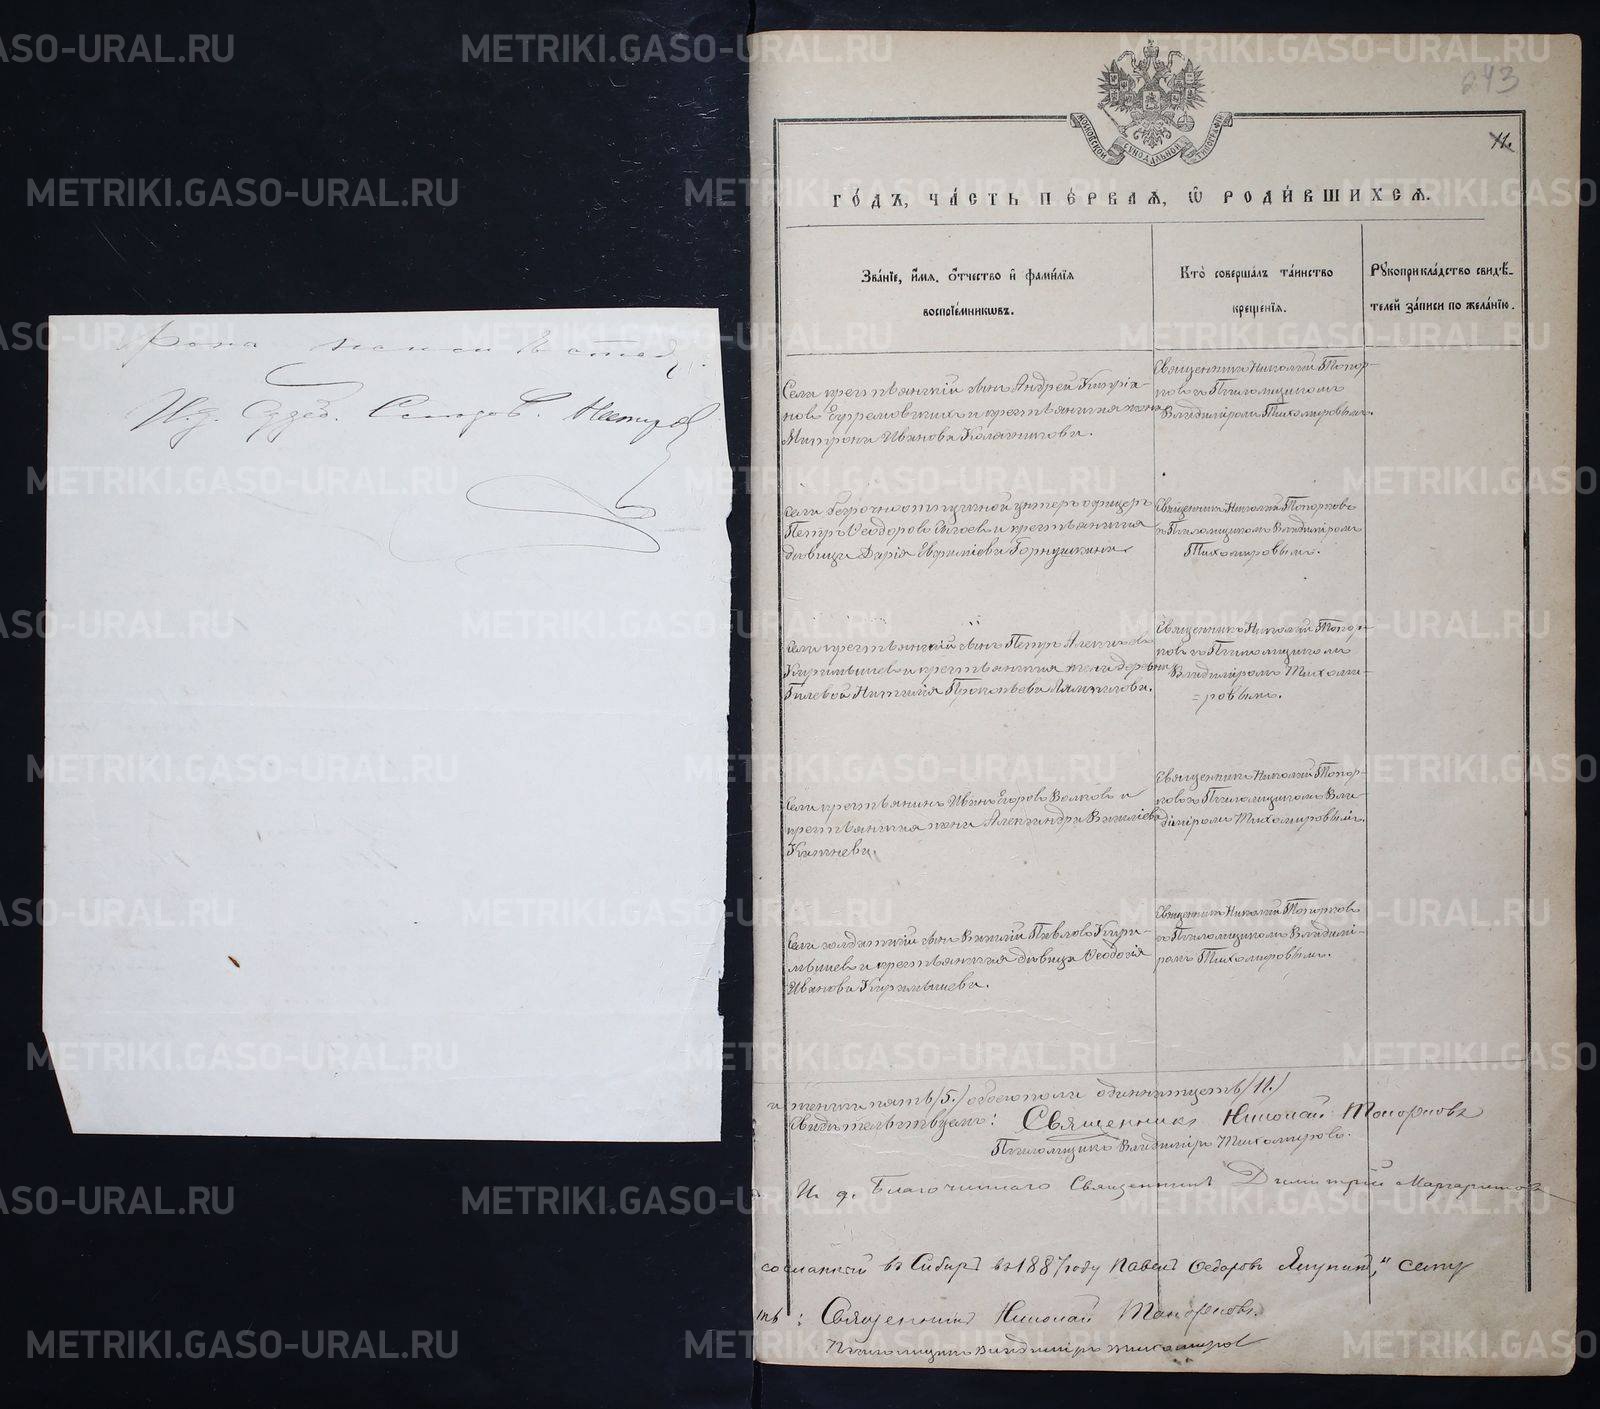 И. д. Судеб.
243
11.
МОСКОВСКОЙ СѴНОДАЛЬНОЙ ТИПОГРАФІИ
ГО́ДЪ, ЧА́СТЬ ПЕ́РВАѦ, Ѽ РОДИ́ВШИХСѦ.
Зва́нїе, и҆́мѧ, ѻ҆́тчество и҆ фами́лїѧ
воспрїе́мникѡвъ.
Кто̀ соверша́лъ та́инство
креще́нїѧ.
Рꙋкоприкла́дство свидѣ́-
телей за́писи по жела́нїю.
Села крестьянскій сынъ Андрей Кипріа-
новъ Ефремовыхъ и крестьянская жена
Матрона Иванова Калачикова.
Священникъ Николай Топор-
ковъ съ Псаломщикомъ
Владиміромъ Тихомировымъ.
Села безсрочноотпускной унтеръ офицеръ
Петръ Ѳеодоровъ и крестьянская
дѣвица Дарія Евфиміева Горнушкина
Священникъ Николай Топорковъ
съ Псаломщикомъ Владиміромъ
Тихомировымъ.
Села крестьянскій сынъ Петръ Алексѣевъ
Карамышевъ и крестьянская жена деревни
Гилевой Наталія Прокопьева
Священникъ Николай Топор-
ковъ съ Псаломщикомъ
Владиміромъ Тихоми-
=ровымъ.
Села крестьянинъ Иванъ Егоровъ Волковъ и
крестьянская жена Александра Васильева
Священникъ Николай Топор-
ковъ съ Псаломщикомъ Вла-
диміромъ Тихомировымъ.
Села солдатскій сынъ Василій Павловъ Кара-
мышевъ и крестьянская дѣвица Ѳеодосія
Иванова Карамышева.
Священникъ Николай Топорковъ
съ Псаломщикомъ Владимі-
ромъ Тихомировымъ.
женска пять /5./ обоего пола одиннадцать /11./
Свидѣтельствуемъ: Священникъ Николай Топорковъ
Псаломщикъ Владиміръ Тихомировъ.
И. д. Благочиннаго Священникъ Димитрій Маргаритовъ
сосланной въ Сибирь въ 1887 году Павелъ Ѳедоровъ Якунинъ," сему
ть: Священникъ Николай Топорковъ.
Псаломщикъ Владиміръ Тихомировъ
METRIKI.GASO-URAL.RU